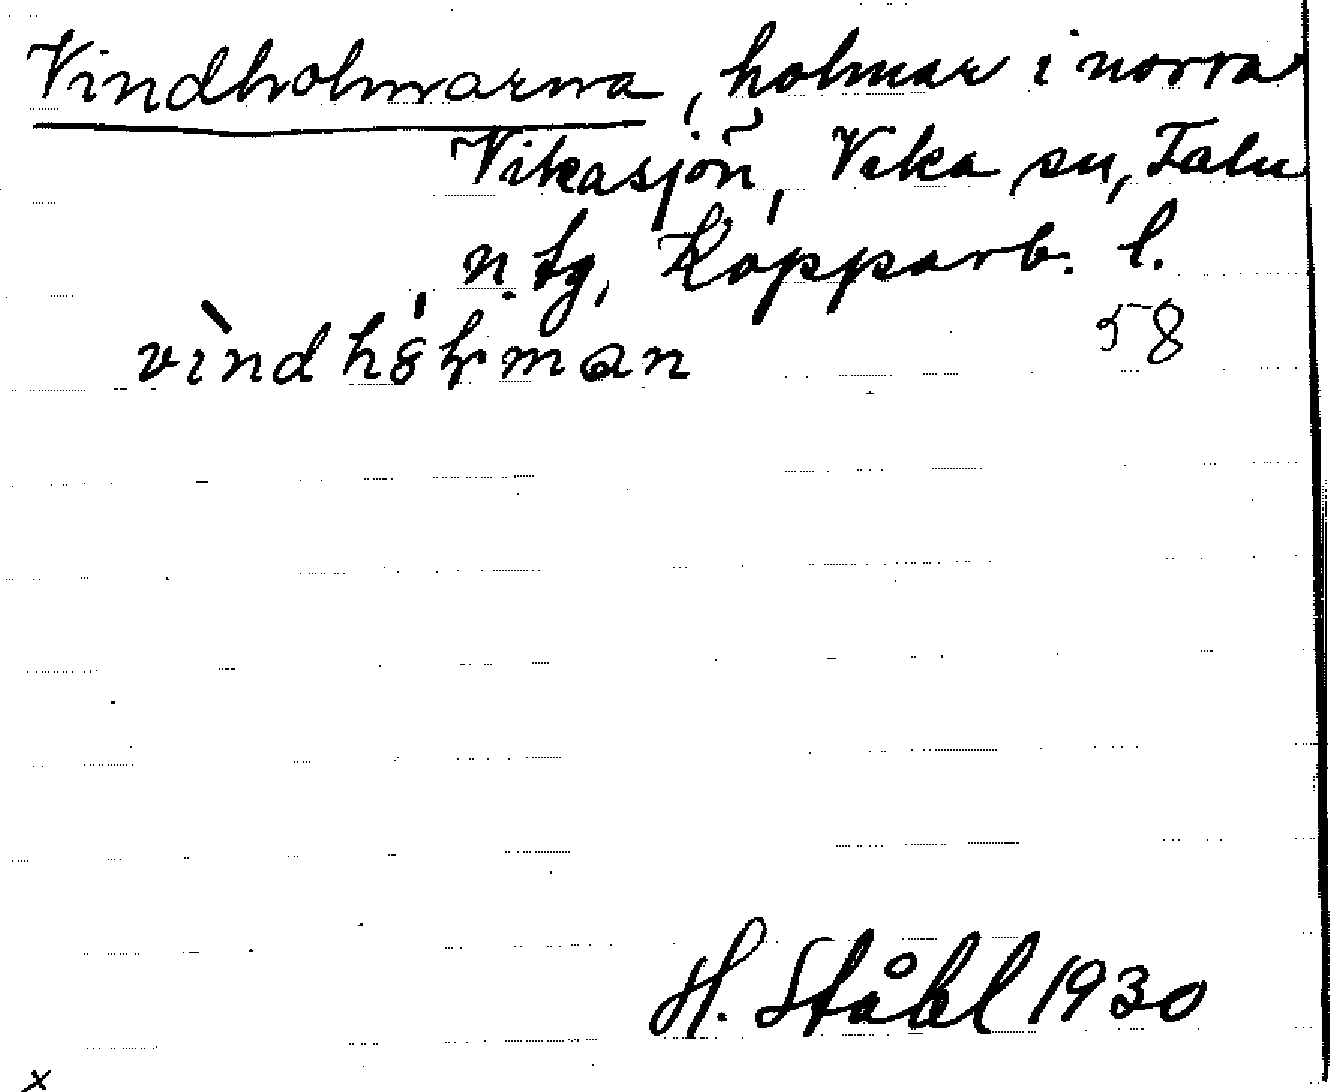 Vindholmarna, holmar i norra
Vikasjön, Vika sn, Falu
n. tg, Kopparb. l.
58
H. Ståhl 1930
x